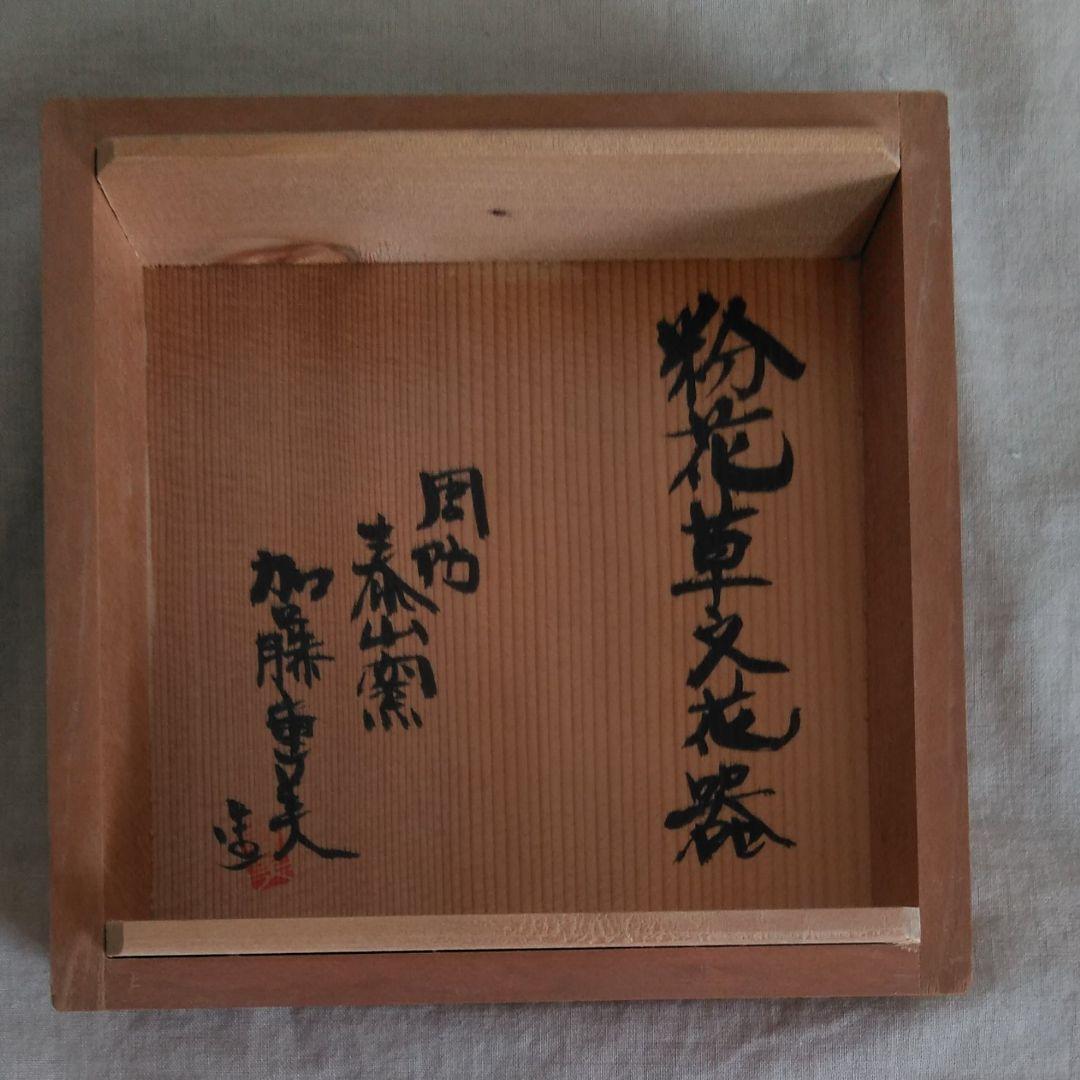 粉花草文花器
周防
泰山窯
加藤重美
造